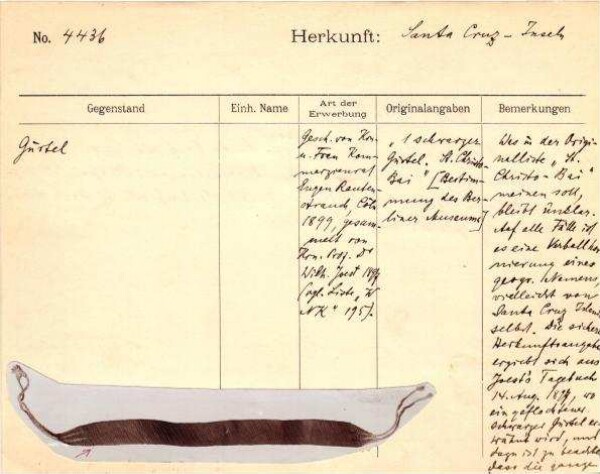 No. 4436
Herkunft: Santa Cruz-Inseln
Gegenstand
Einh. Name
Art der
Erwerbung
Originalangaben
Bemerkungen
Gürtel
Gesch. von Hrn
u. Frau Kom-
merzienrat
Eugen Rauten-
strauch, Cöln
1899, gesam-
melt von
Hrn. Prof. Dr
Wilh. Joest 1897
[vgl. Liste „W
NK“ 195].
„1 schwarzer
Gürtel. St. Christo-
Bai“ [Bestim-
mung des Ber-
liner Museums]
Was in der Origi-
nalliste „St.
Christo-Bai“
meinen soll,
bleibt unklar.
Auf alle Fälle ist
es eine Verballhor-
nisierung eines
geogr. Namens,
vielleicht von
Santa Cruz Island
selbst. Die sichere
Herkunftsangabe
ergiebt sich aus
Joest's Tagebuch
14. Aug. 1897, wo
ein geflochtener
schwarzer Gürtel er-
wähnt wird, und
dazu ist zu beachten
dass die ganze